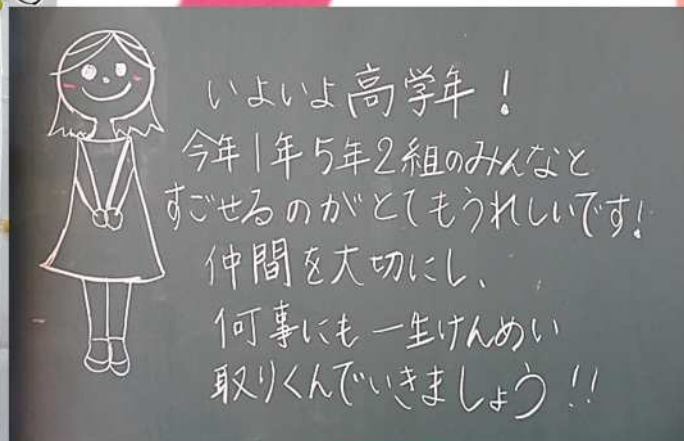 いよいよ高学年！
今年1年5年2組のみんなと
すごせるのがとてもうれしいです！
仲間を大切にし、
何事にも一生けんめい
取りくんでいきましょう！！